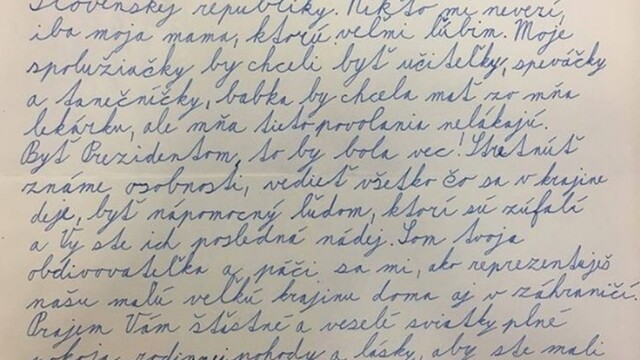 Slovenskej republiky. Nikto mi neverí,
iba moja mama, ktorú veľmi ľúbim. Moje
spolužiačky by chceli byť učiteľky, speváčky
a tanečníčky, babka by chcela mať zo mňa
lekárku, ale mňa tieto povolania nelákajú.
Byť Prezidentom, to by bola vec! Stretnúť
známe osobnosti, vedieť všetko čo sa v krajine
deje, byť nápomocný ľuďom, ktorí sú zúfalí
a Vy ste ich posledná nádej. Som tvoja
obdivovateľka a páči sa mi, ako reprezentuješ
našu malú veľkú krajinu doma aj v zahraničí.
Prajem Vám štastné a veselé sviatky plné
pokoja, rodinnej pohody a lásky, aby ste mali